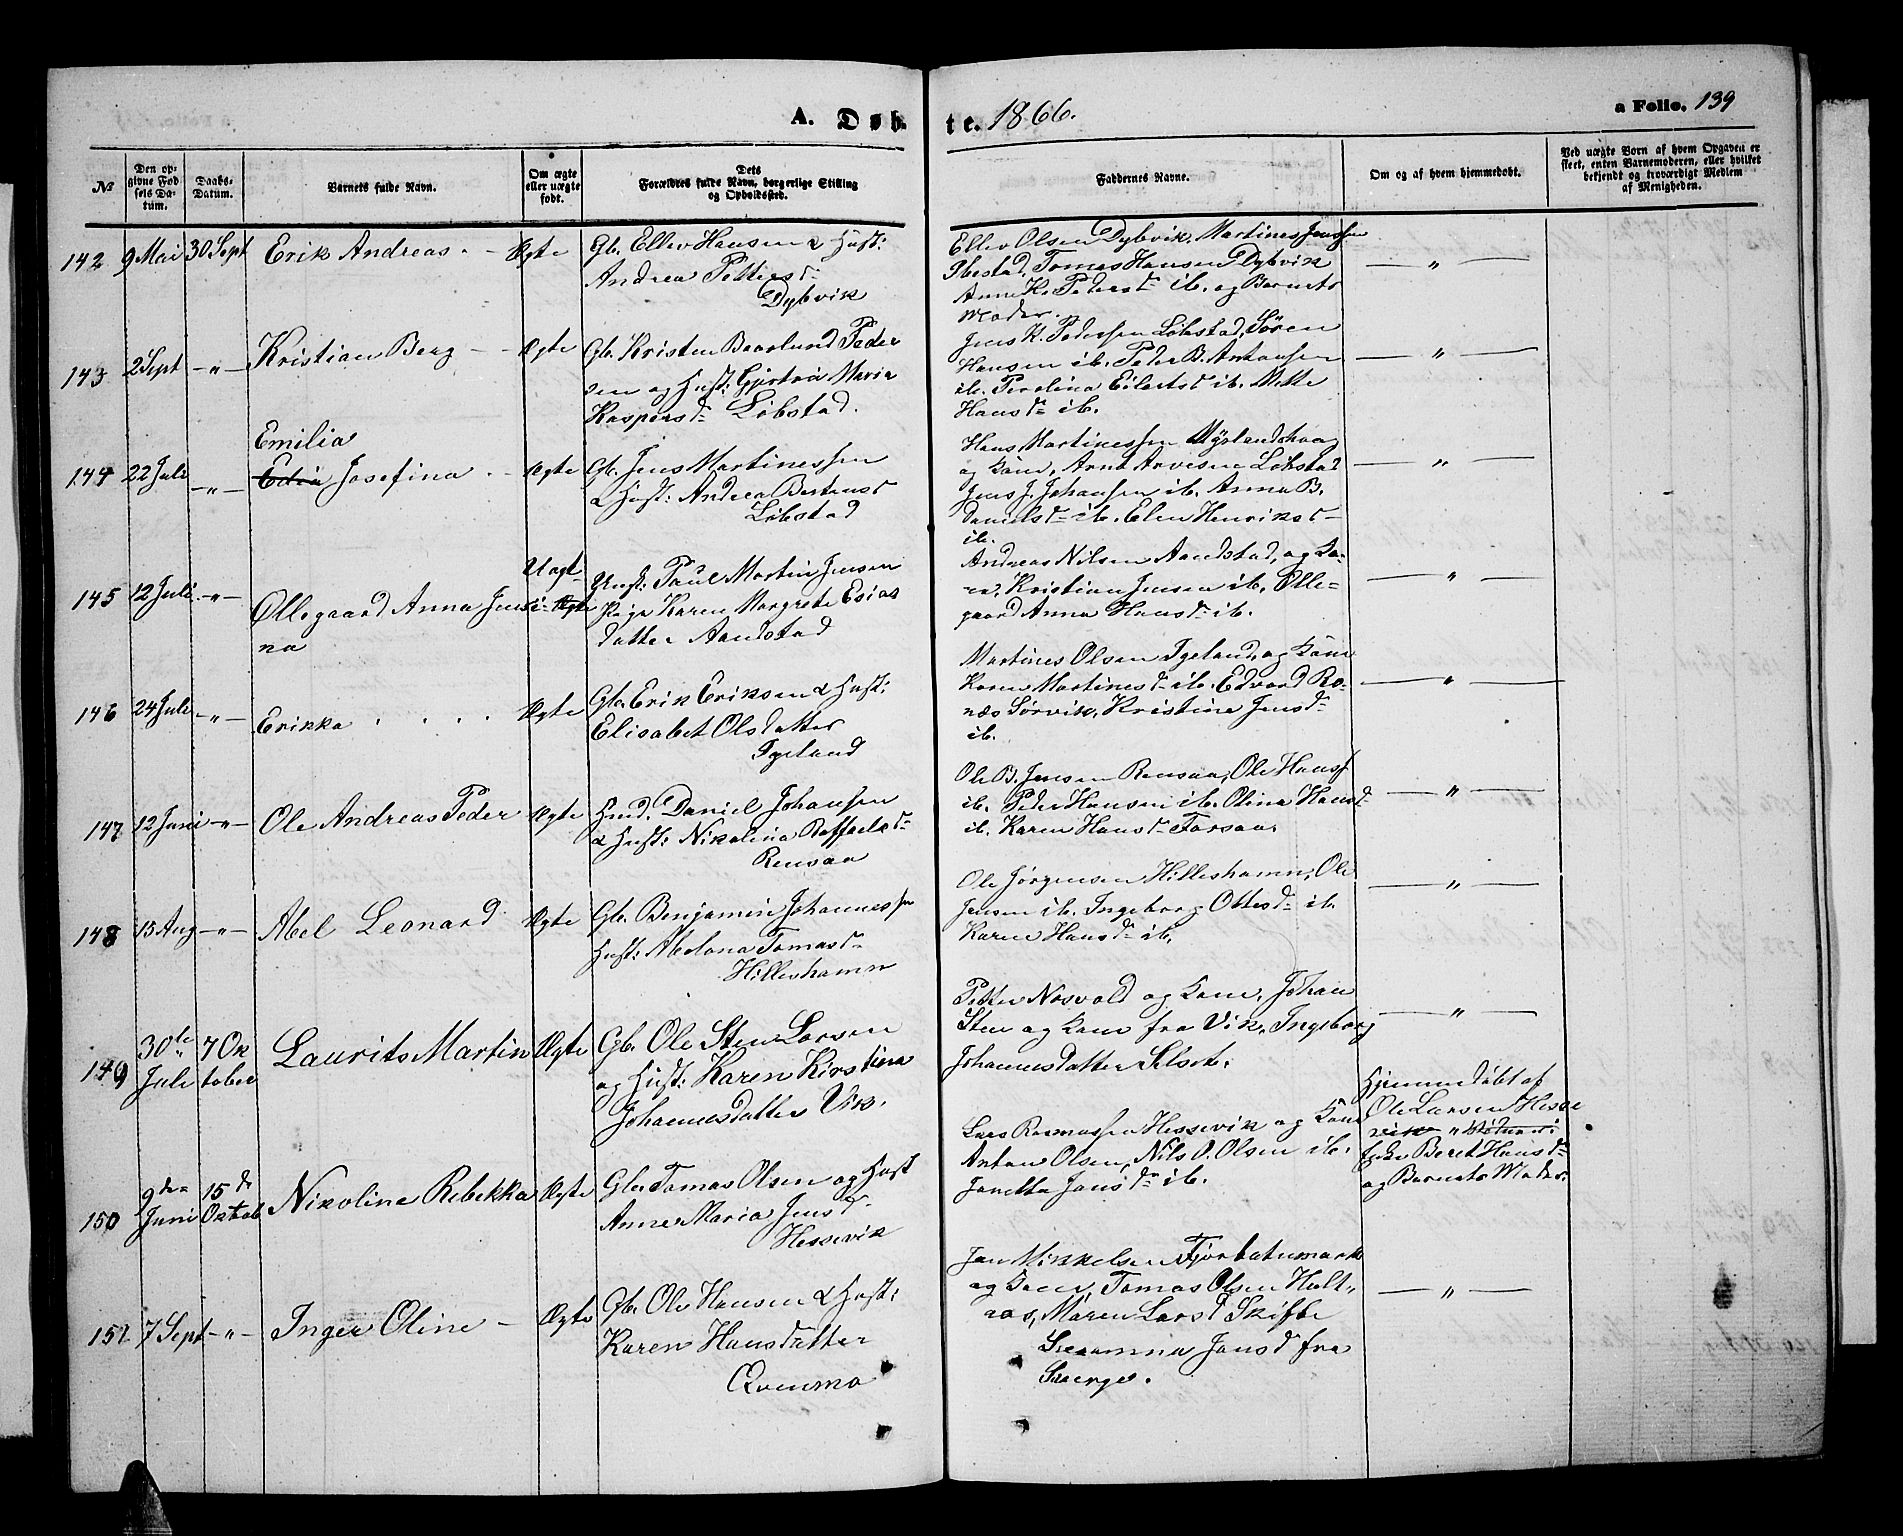 A. Døbte. 1866.
a Folio. 139
№
Den opgivne Fødsels Datum.
Daabs-Datum.
Barnets fulde Navn.
Om ægte eller uægte født.
Dets Forældres fulde Navn, borgerlige Stilling og Opholdssted.
Faddernes Navne.
Om og af hvem hjemmedøbt.
Ved uægte Børn af hvem Opgaven er skeet, enten Barnemoderen, eller hvilket bekjendt og troværdigt Medlem af Menigheden.
142 9 Mai 30 Sept Erik Andreas. - Ægte
Gb. Ellev Hansen & Hust:
Andrea Petters d-
Dybvik
Ellev Olsen Dybvik, Martines Jenssen
Ibestad, Tomas Hansen Dybvik
Anne K. Peders d- ib. og Barnets
Moder.
— " —
143 2 Sept — " — Kristian Berg - - Ægte
Gb. Kristen Baarlund Peder
sen og Hust: Gjertrü Maria
Kaspers d- Løbstad.
Jens K. Pedersen Løbstad, Søren
Hansen ib. Peder B. Antonsen
ib. Perolina Eilerts d ib. Mette
Hans d- ib.
— " —
144 22 Juli — " — Emilia
Josefina - Ægte
Gb. Jens Martinessen
& Hust: Andrea Bertens d
Løbstad
Hans Martinessen Myrlandshaug
og Kone, Arnt Arvesen Løbstad
Jens J. Johansen ib. Anna B.
Daniels d- ib. Elen Henriks d-
ib.
— " —
145 12 Juli — " — Ollegaard Anna Jensi-
na
Uægte
Ungk: Paul Martin Jensen
Pige Karen Margrete Esias
datter Aandstad
Andreas Nilsen Aandstad, og Ko-
ne, Kristian Jensen ib. Olle-
gaard Anna Hans d- ib.
— " —
146 24 Juli — " — Erikka . . . . Ægte
Gb. Erik Eriksen & Hust:
Elisabet Olsdatter
Tyeland
Martines Olsen Tyeland, og Kone
Karen Martines d- ib. Edvard Ro-
næs Sørvik, Kristine Jens d-
ib.
— " —
147 12 Juni — " — Ole Andreas Peder Ægte
Husd. Daniel Johansen
& Hust: Nikolina Raffaels d-
Rensaa
Ole B. Jensen Rensaa, Ole Hanss.
ib. Peder Hansen ib. Olina Hans d-
ib. Karen Hans d- Forsaa.
— " —
148 15 Aug — " — Abel Leonard Ægte
Gb. Benjamin Johannessen
Hust: Abelona Tomas d-
Hilleshamn
Ole Jørgensen Hilleshamn, Ole
Jensen ib. Ingeborg Ottes d- ib.
Karen Hans d- ib.
— " —
149 30te Juli 7 Oktober Laurits Martin Ægte
Gb. Ole Sten Larsen
og Hust: Karen Kirstina
Johannesdatter Vik.
Petter Nosvold og Kone, Johan
Sten og Kone fra Vik, Ingeborg
Johannesdatter Selset.
— " —
150 9de Juni 15d Oktob Nikoline Rebekka Ægte
Gb. Tomas Olsen og Hust
Anne Maria Jens d-
Hessevik
Lars Rasmussen Hessevik og Kone
Anton Olsen, Nils O. Olsen ib.
Janetta Jans d- ib.
Hjemmedøbt af
Ole Larsen Hesse
vik
Enke Beret Hans d-
og Barnets Moder.
151 7 Sept — " — Inger Oline - Ægte
Gb. Ole Hansen & Hust:
Karen Hansdatter
Qvenmo
Jon Mikkelsen Fjordbotnmark
og Kone, Tomas Olsen Holt-
aas, Maren Lars d Skifte
Susanna Jans d fra
Sverge.
— " —